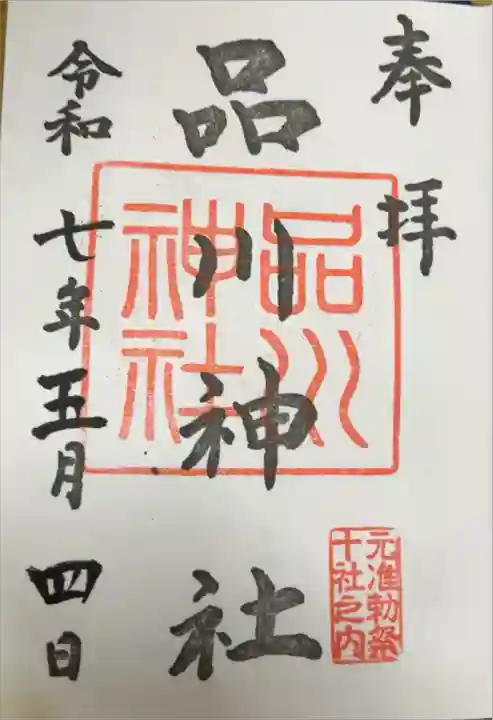 奉拝
品川神社
品川
神社
元准勅祭
十社之内
令和七年五月四日